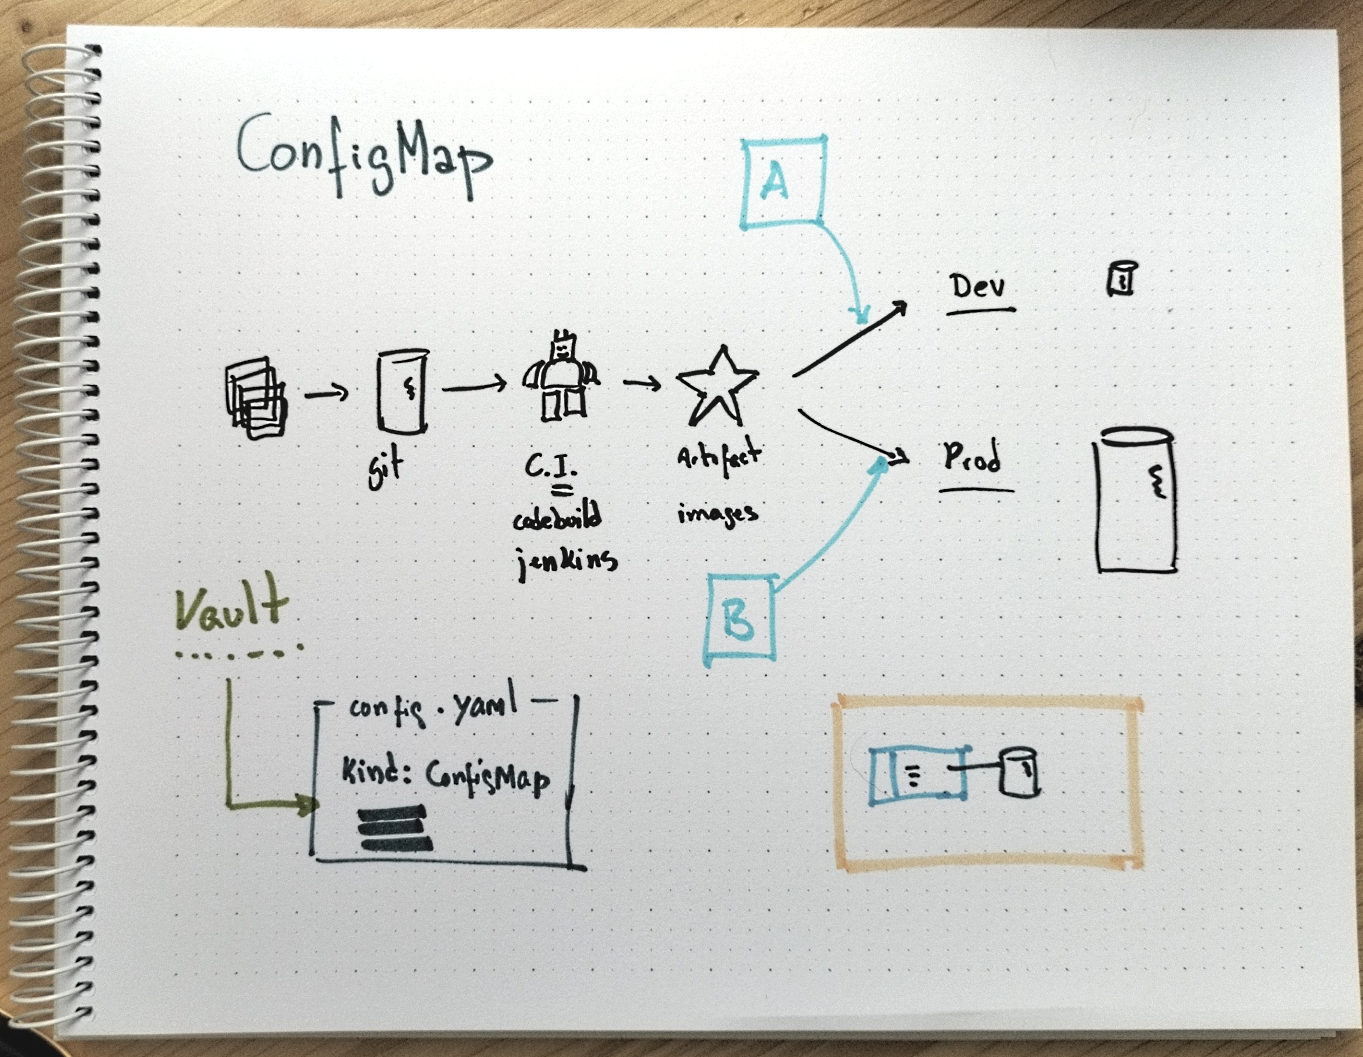 ConfigMap
A
Dev
git
C.I.
codebuild
jenkins
Artifact
images
Prod
B
Vault
config.yaml
Kind: ConfigMap